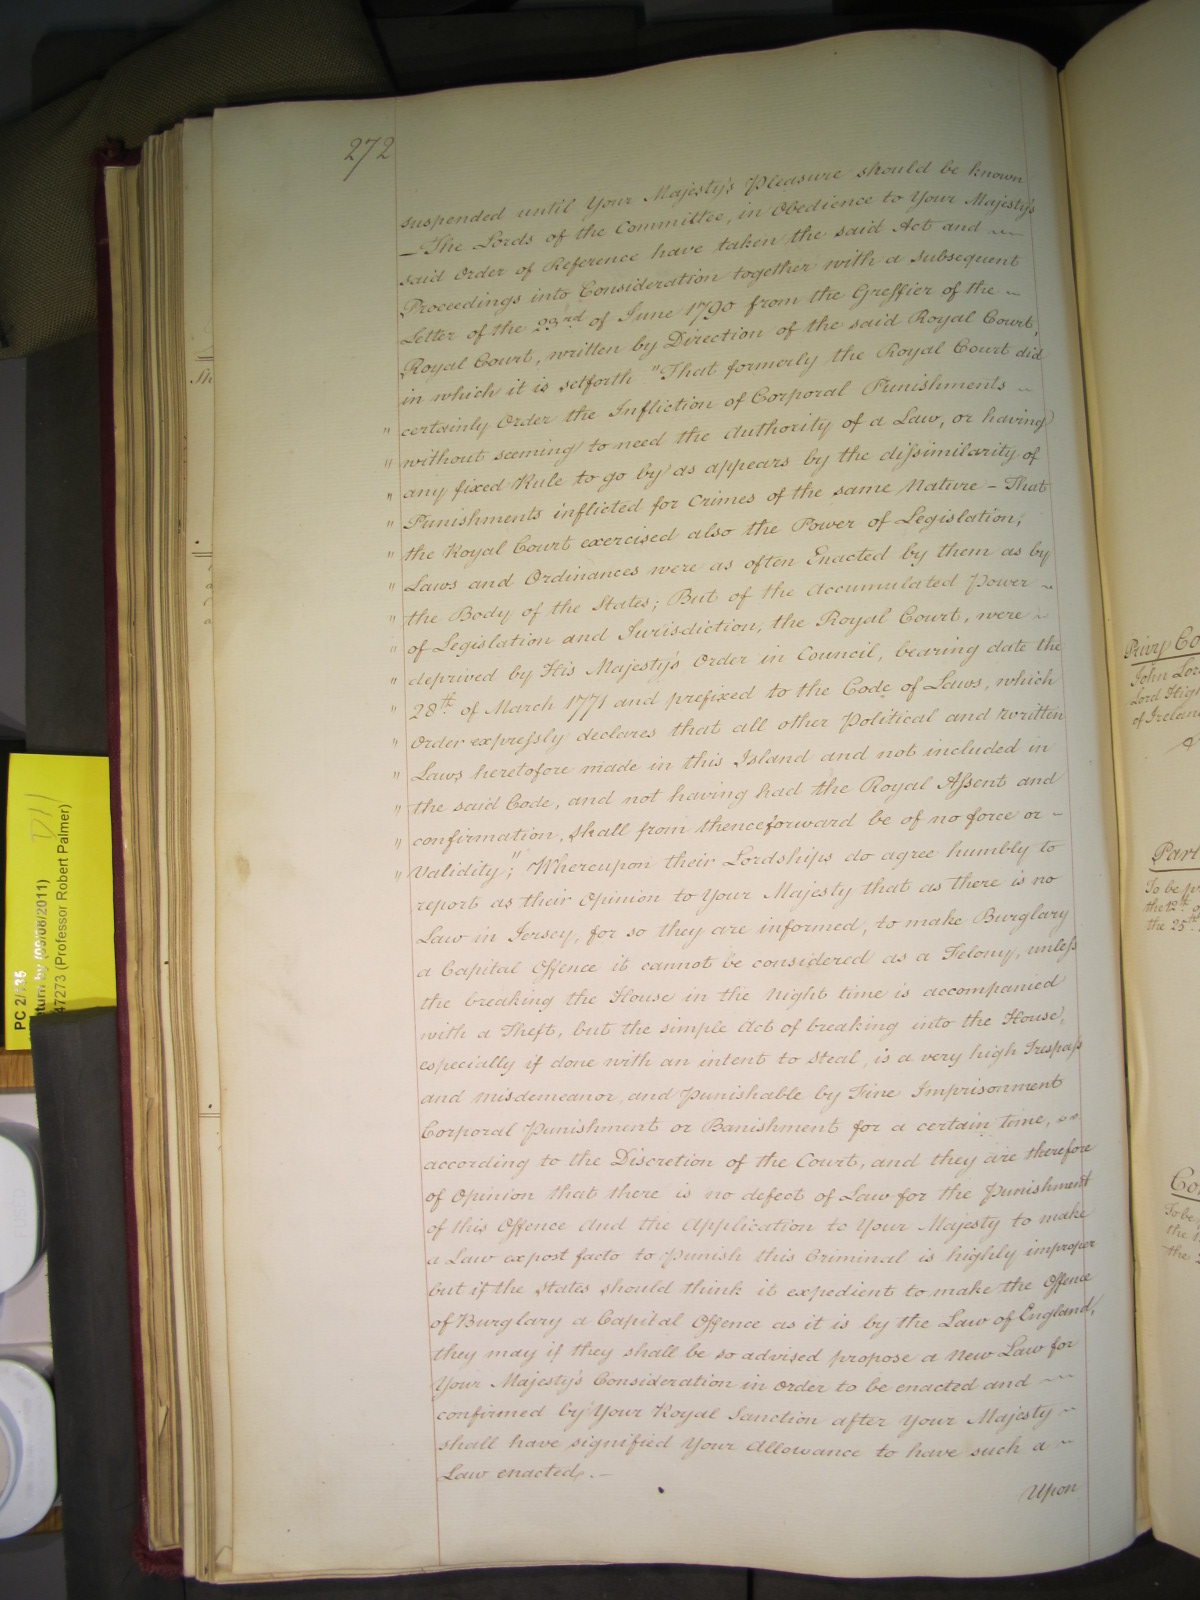 272
suspended until Your Majesty's Pleasure should be known
—The Lords of the Committee, in Obedience to Your Majesty's
said Order of Reference have taken the said Act and
Proceedings into Consideration together with a subsequent
Letter of the 23rd of June 1790 from the Greffier of the
Royal Court, written by Direction of the said Royal Court,
in which it is setforth "That formerly the Royal Court did
" certainly Order the Infliction of Corporal Punishments
" without seeming to need the Authority of a Law, or having
" any fixed Rule to go by as appears by the dissimilarity of
" Punishments inflicted for Crimes of the same Nature – That
" the Royal Court exercised also the Power of Legislation,
" Laws and Ordinances were as often Enacted by them as by
" the Body of the States; But of the Accumulated Power
" of Legislation and Jurisdiction, the Royal Court, were
" deprived by His Majesty's Order in Council, bearing date the
" 28th of March 1771 and prefixed to the Code of Laws, which
" Order expressly declares that all other Political and written
" Laws heretofore made in this Island and not included in
" the said Code, and not having had the Royal Assent and
" confirmation, shall from thenceforward be of no force or
" Validity"; Whereupon their Lordships do agree humbly to
report as their Opinion to Your Majesty that as there is no
Law in Jersey, for so they are informed, to make Burglary
a Capital Offence it cannot be considered as a Felony, unless
the breaking the House in the Night time is accompanied
with a Theft, but the simple Act of breaking into the House,
especially if done with an intent to steal, is a very high Trespass
and misdemeanor, and Punishable by Fine Imprisonment
Corporal Punishment or Banishment for a certain time,
according to the Discretion of the Court, and they are therefore
of Opinion that there is no defect of Law for the Punishment
of this Offence and the Application to Your Majesty to make
a Law expost facto to Punish this Criminal is highly improper
but if the States should think it expedient to make the Offence
of Burglary a Capital Offence as it is by the Law of England,
they may if they shall be so advised propose a New Law for
Your Majesty's Consideration in order to be enacted and
confirmed by Your Royal Sanction after Your Majesty
shall have signified Your Allowance to have such a
Law enacted. —
Upon
PC 2/135
(Professor Robert Palmer)
Privy Co
John Lor
Lord High
of Ireland
Part
To be
the 12th
the 25th
Co
To be
the
the